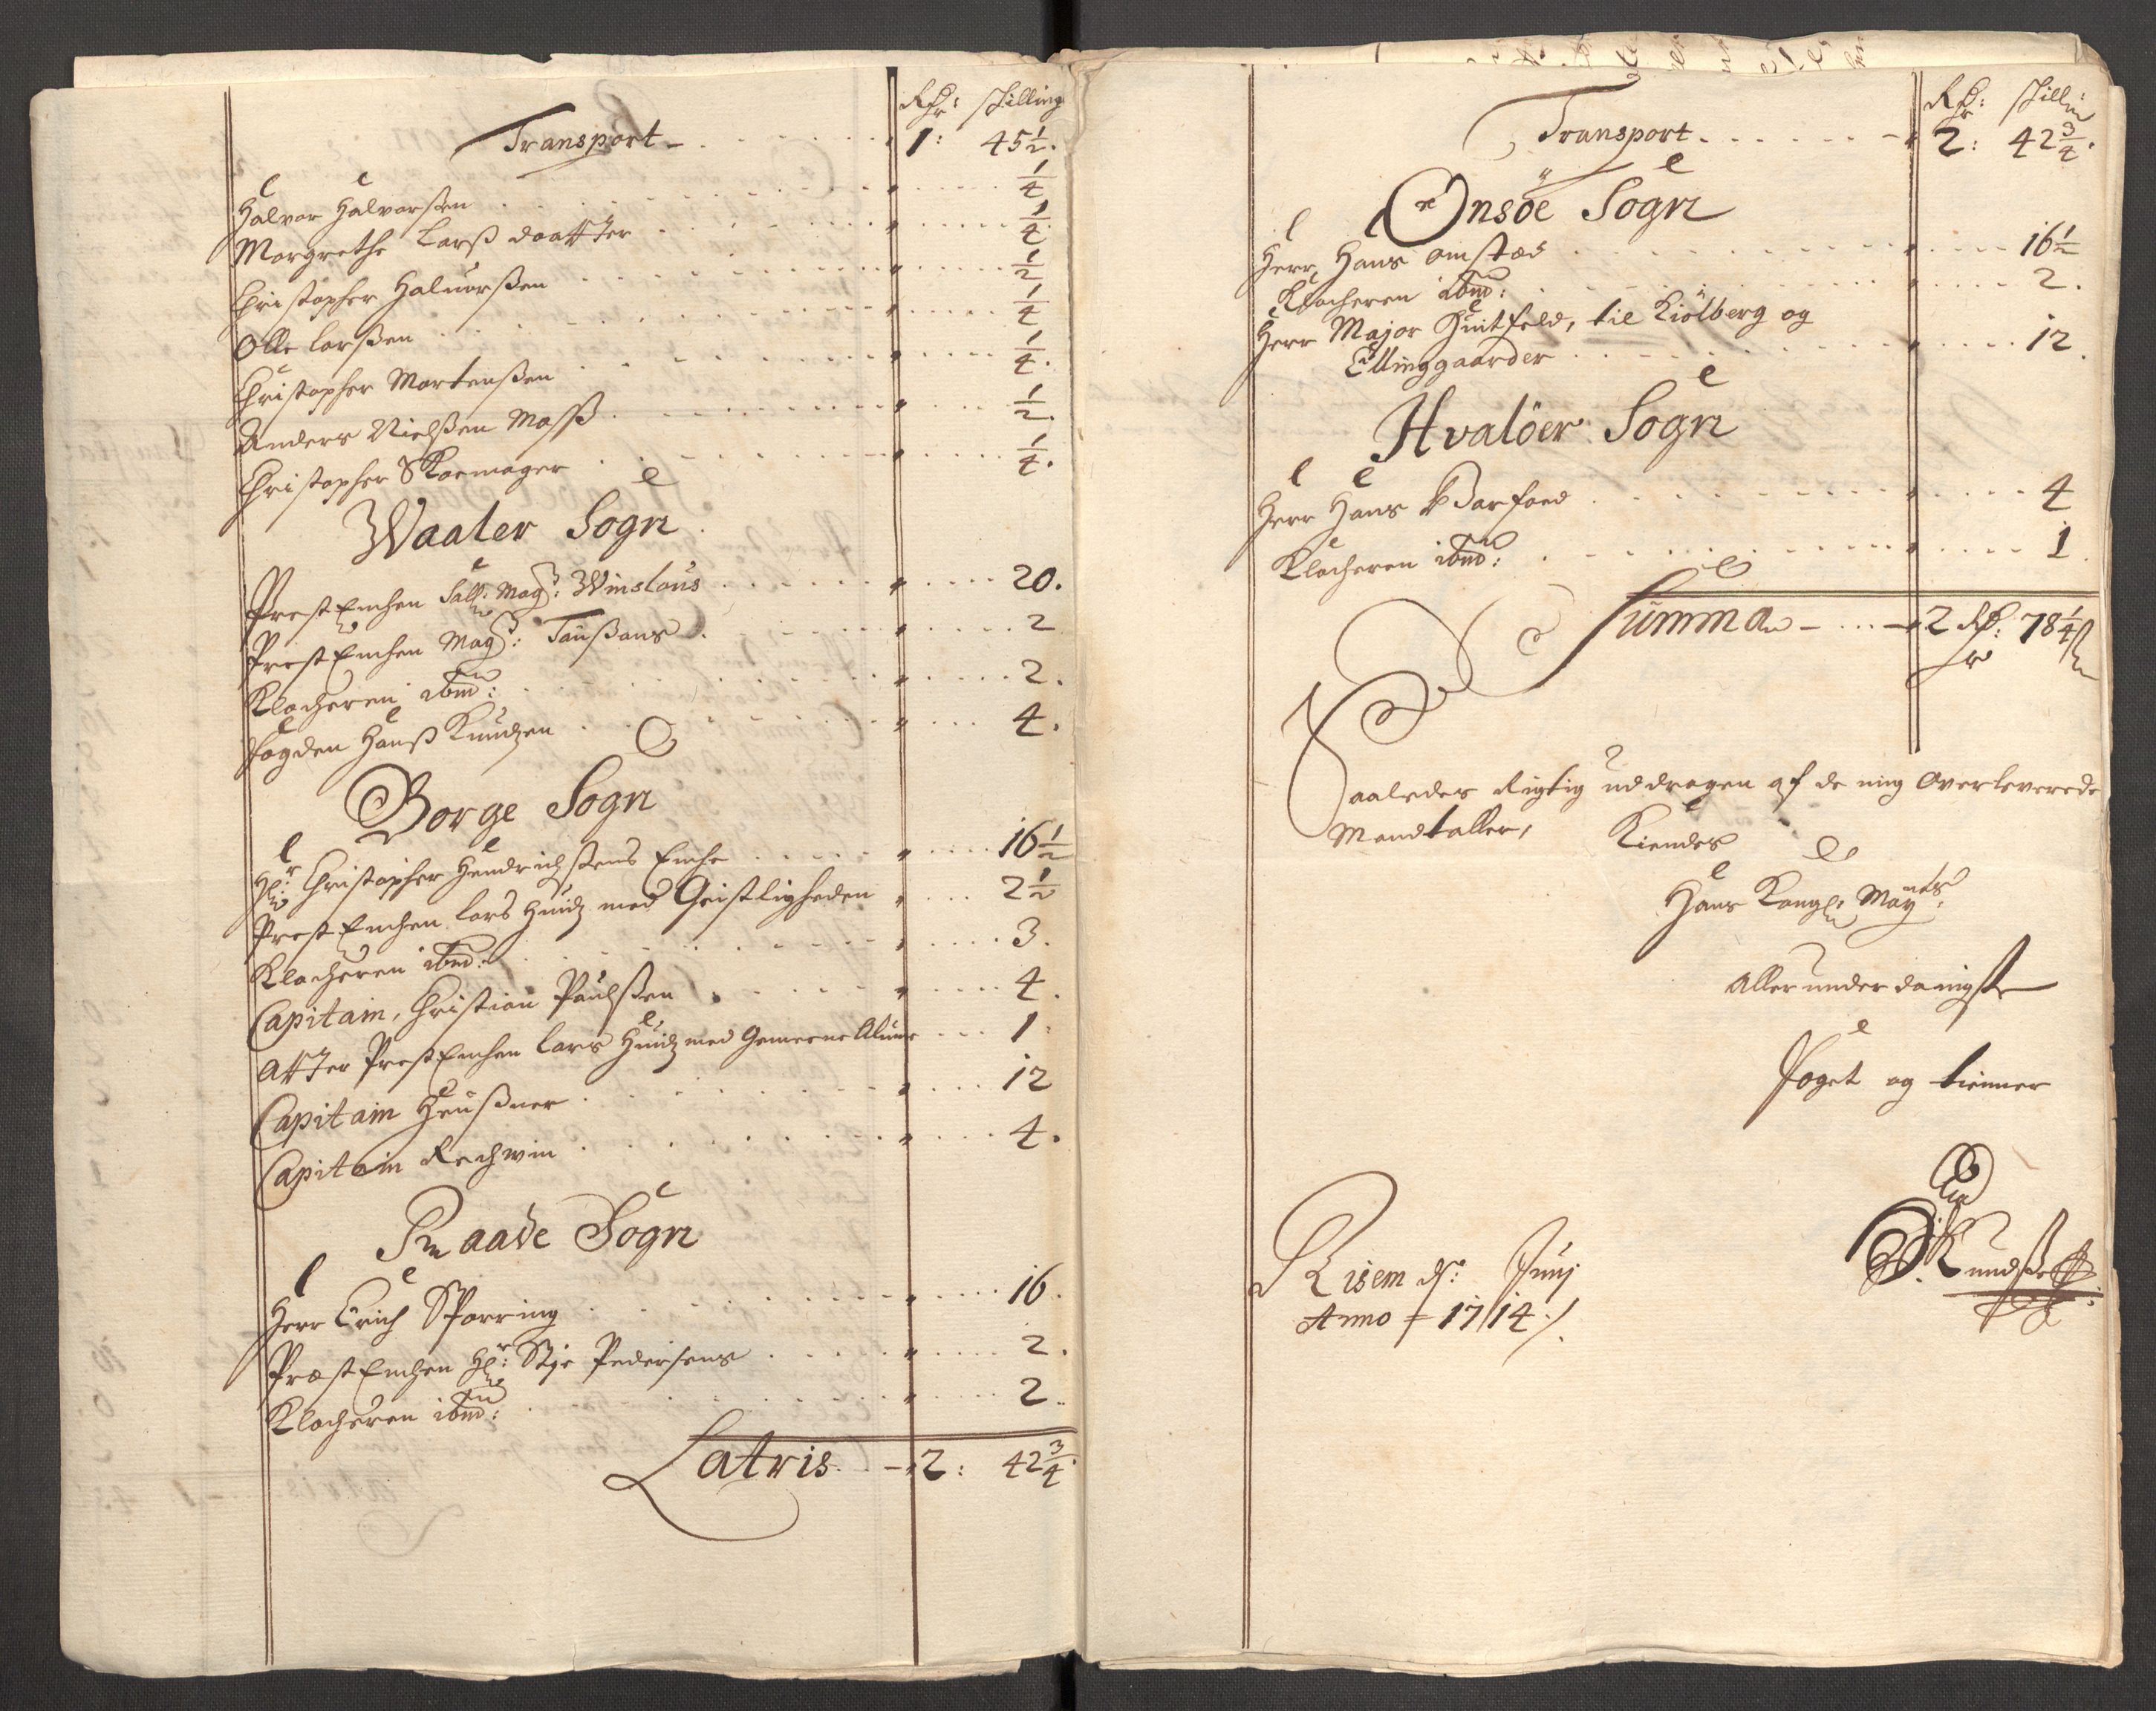 Rdr: skilling
Transport - 1: 45½.
Halvor Halvorßen ¼
Margrethe Larß daatter ¼
Christopher Haluorßen ½
Olle Larßen ¼
Christopher Mortenßen ¼.
Anders Nielßen Moss ½.
Christopher Skoemager ¼.
Waaler Sogn
Prest Enchen Sall: Magr: Winslous 20.
Prest Enchen Magr: Taußans 2
Klocheren ibm: 2.
Fogden Hanß Knudzen 4.
Borge Sogn
Hr: Christopher Hendrichßens Enche 16½
Prest Enchen Lars Huidz med Geistligheden 2½
Klocheren ibm: 3.
Capitain, Christian Paulßen 4.
Atter Prest Enchen Lars Huidz med Gemeene Alm 1:
Capitain Heußner 12
Capitain Rechwin 4.
Raade Sogn
Herr Erich Sparring 16.
Præst Enchen Hr: Stje Pedersens 2.
Klocheren ibm: 2.
Latris - 2: 42¾.
Rdr: skill:
Transport - 2: 42¾.
Onsöe Sogn
Herr, Hans omstæd 16½
Klocheren ibm: 2.
Herr Major Huitfeld, til Kiölberg og
Ellinggaarder 12.
Hvalöer Sogn
Herr Hans Barfoed 4
Klocheren ibm: 1.
Summa - 2 Rdr: 78¼ s
Saaledes Rigtig uddragen af de mig Overleverede
Mandtaller, Kiendes
Hans Kongl: Mayts:
Allerunderdanigste
Foget og tienner
Risem ds: Junj
Anno 1714.
H Knudßen